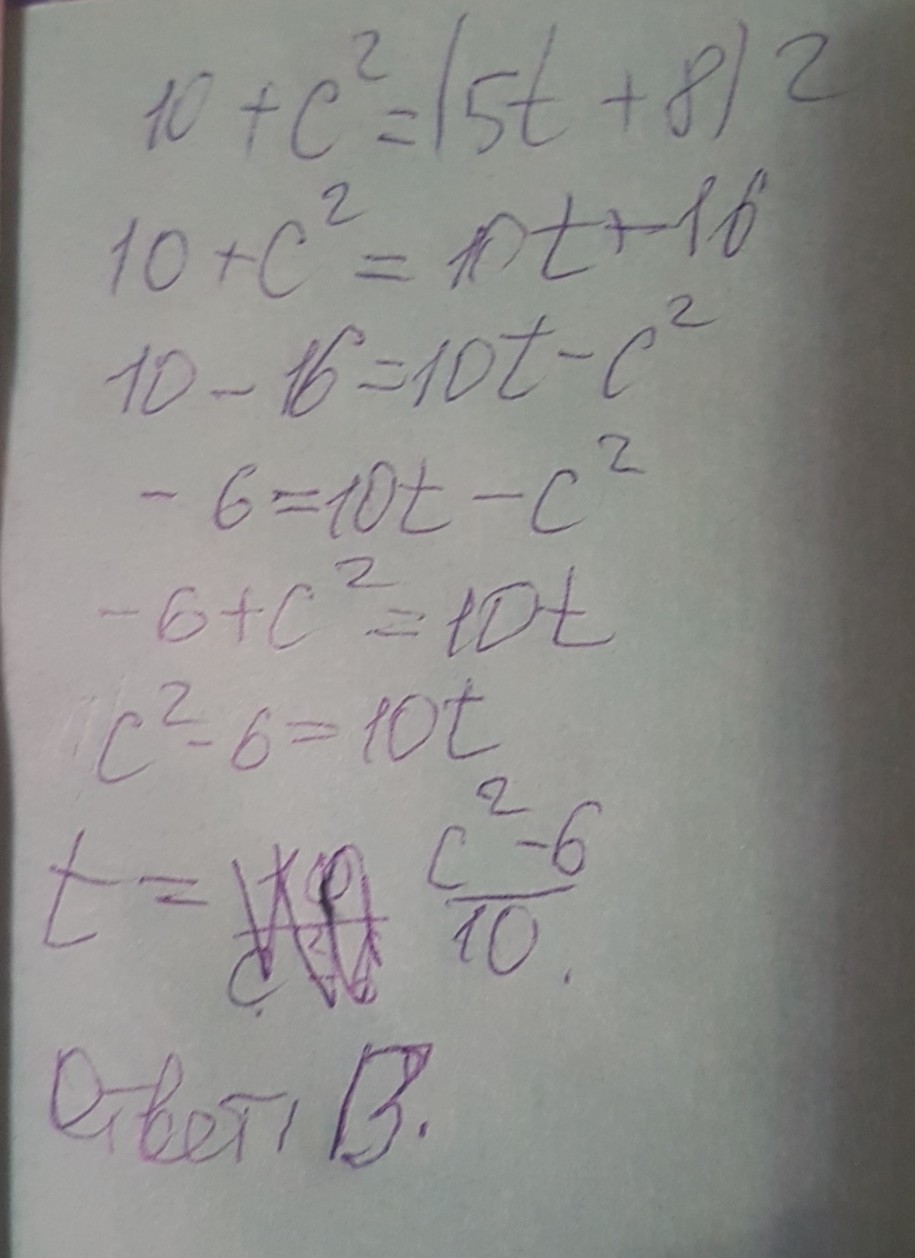 10 + c² = (5t + 8) 2
10 + c² = 10t + 16
10 - 16 = 10t - c²
- 6 = 10t - c²
- 6 + c² = 10t
c² - 6 = 10t
t = c² - 6 / 10.
Ответ: В.